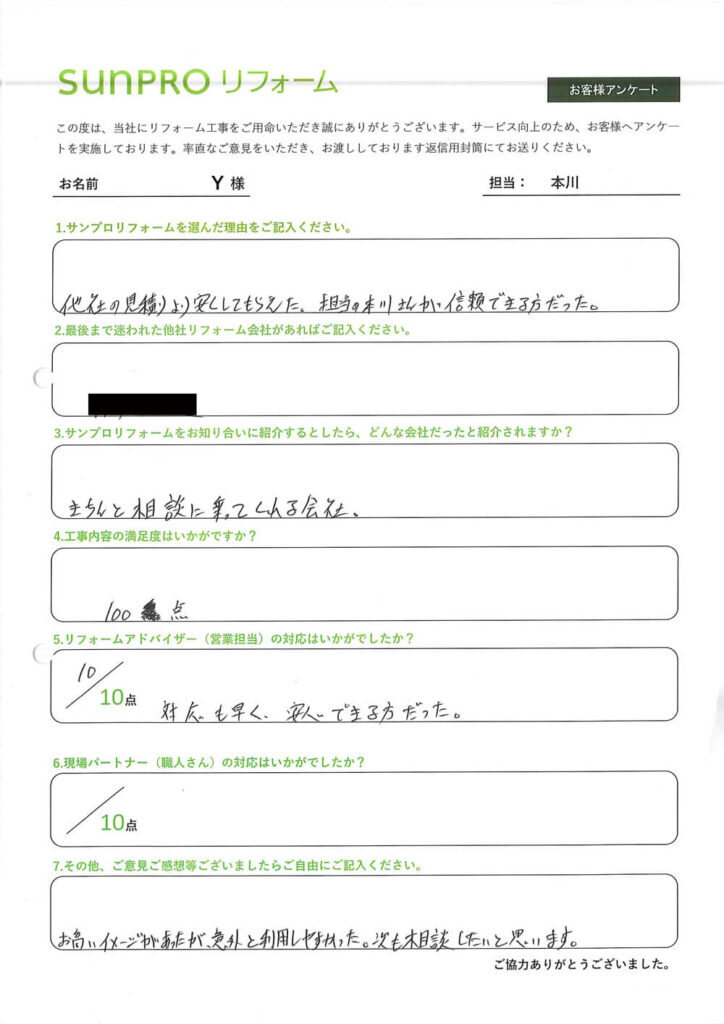 sunPRO リフォーム
お客様アンケート
この度は、当社にリフォーム工事をご用命いただき誠にありがとうございます。サービス向上のため、お客様へアンケー
トを実施しております。率直なご意見をいただき、お渡ししております返信用封筒にてお送りください。
お名前 Y 様 担当： 本川
1.サンプロリフォームを選んだ理由をご記入ください。
他社の見積りより安くしてもらえた。担当の本川さんが信頼できる方だった。
2.最後まで迷われた他社リフォーム会社があればご記入ください。
3.サンプロリフォームをお知り合いに紹介するとしたら、どんな会社だったと紹介されますか？
きちんと相談に乗ってくれる会社。
4.工事内容の満足度はいかがですか？
100 点
5.リフォームアドバイザー（営業担当）の対応はいかがでしたか？
10/10点 対応も早く、安心できる方だった。
6.現場パートナー（職人さん）の対応はいかがでしたか？
/10点
7.その他、ご意見ご感想等ございましたらご自由にご記入ください。
お高いイメージがあったが、意外と利用しやすかった。次も相談したいと思います。
ご協力ありがとうございました。